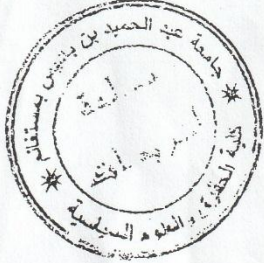 جامعة عبد الحميد بن باديس بمستغانم
كلية الحقوق والعلوم السياسية